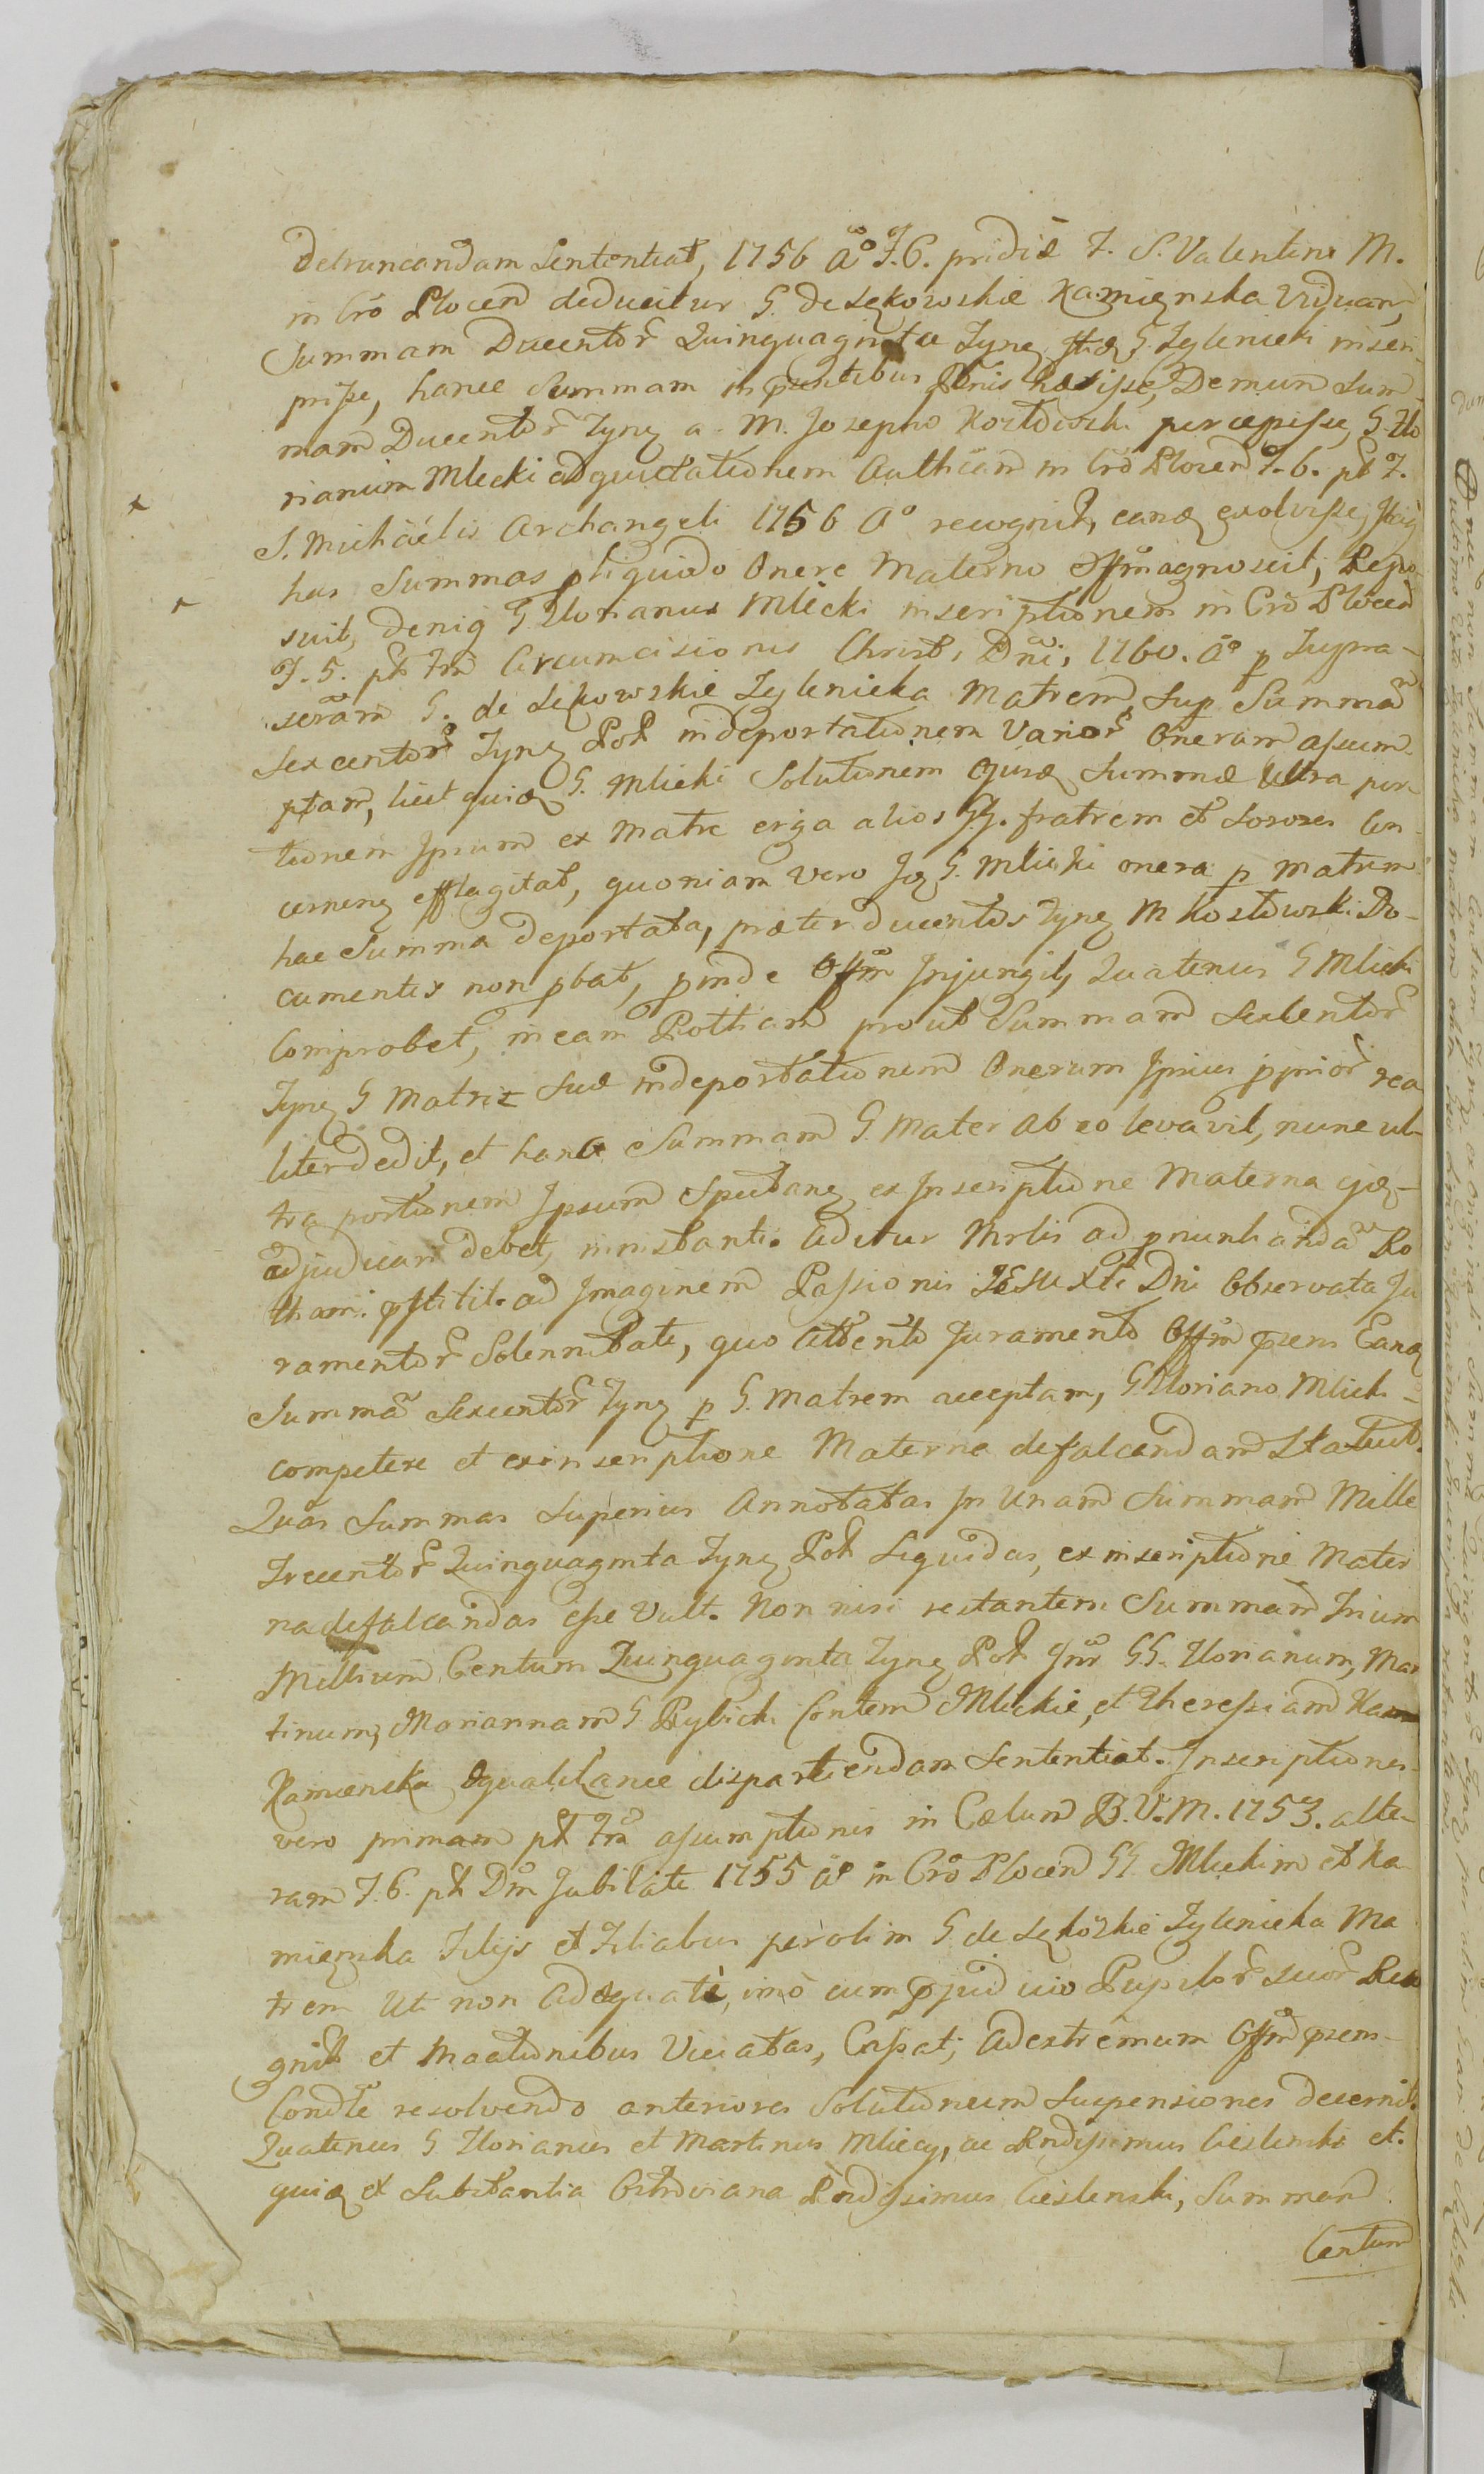 detruncandam Sententiat, 1756 Aº F. 6. pridie F. S. Valentini M.
in Crō Plocen deducitur G. de Lękowskie Kamięnska Viduam,
Summam Ducentor Quinquaginta Tynf G. Zylenieki inscri-
psisse, hance Summam in pſentibus Bonis hæsisse, Demum Sum-
mam Ducentor Tynf a M. Josepho Kostowski percepisse, G. Flo
rianum Mlicki ad quietationem Authēam in Crō Plocen F. 6. pt F.
S. Michaëlis Archangeli 1756 Aº recognit, eamq exolvisse,
has Summas p liquido Onere Materno Offm agnoscit, Repo-
suit, deniq G Florianus Mlicki inscriptionem in Crō Plocen
F. 5. pt Fm Circumcisionis Christi Dni, 1760. Aº p Supra-
scrām G. de Lękowskie Zylenieka Matrem, Sup Summa
Sexcentor Tynf Pol in deportationem Varior Onerum assum-
ptam, licet quiq G. Mlicki Solutionem ejusq Summæ Ultra por-
tionem Ipsum ex Matre erga alios GG. fratrem et Sorores Con-
cernenq efflagitat, quoniam vero Iq G. Mlicki onera p Matrem
hac Summa deportata, præter ducentos Tynf M Kostowski Do-
cumentis non pbat, pinde Offm Injungit, Quatenus G Mlicki
Comprobet, in eam Rotham prout Summam Sexcentor
Tynf G Matri Suæ in deportationem Onerum Ipsius pprior rea
liter dedit, et hance Summam G. Mater ab eo levavit, nunc ul-
tra portionem Ipsum Spectanq ex Inscriptione Materna ejq-
adjudicari debet, in instanti. Aditur Mrlis ad pnunciandā Ro
tham. pstitit ad Imaginem Passionis IESU Xti Dni Observata Ju
ramentor Solennitate, quo Attento Juramento Offm præns Eanq
Summā Sexcentor Tynf p G. Matrem acceptam, G Floriano Mlicki
competere et ex inscriptione Materna defalcandam Statuit.
Quas Summas Superius Annotatas In Unam Summam Mille
Trecentor Quinquaginta Tynf Pol Liquidas, ex inscriptione Mater
na defalcandas esse Vult. Non nisi restantem Summam Trium
Millium Centum Quinquaginta Tynf Pol Intr GG. Florianum, Mar
tinum, Mariannam G Rybicki Contem Mlickie, et Theressiam
Kamienska æqualitance dispartiendam Sententiat. Inscriptiones
vero primam pt Fm assumptionis in Cælum B. V. M. 1753. alte-
ram F. 6. pt Dm Jubilate 1755 Aº in Crō Plocen GG. Mlickim et Ka
mięnska Filijs et Filiabus per olim G de Lękoskie Zylenieka Ma
trem Uti non Adæquate, imò cum pjudicio Pupilor suor Reco
gnit et Mactionibus Viciatas, Cassat; Ad extremum Offm præns
Condle resolvendo anteriores Solutionum Suspensiones decernit.
Quatenus G Florianus et Martinus Mliccy, ac Rndissimus Cieslenski et
quiq et Substantia Ostroviana Rndissimus Cieslenski, Summam
Centum